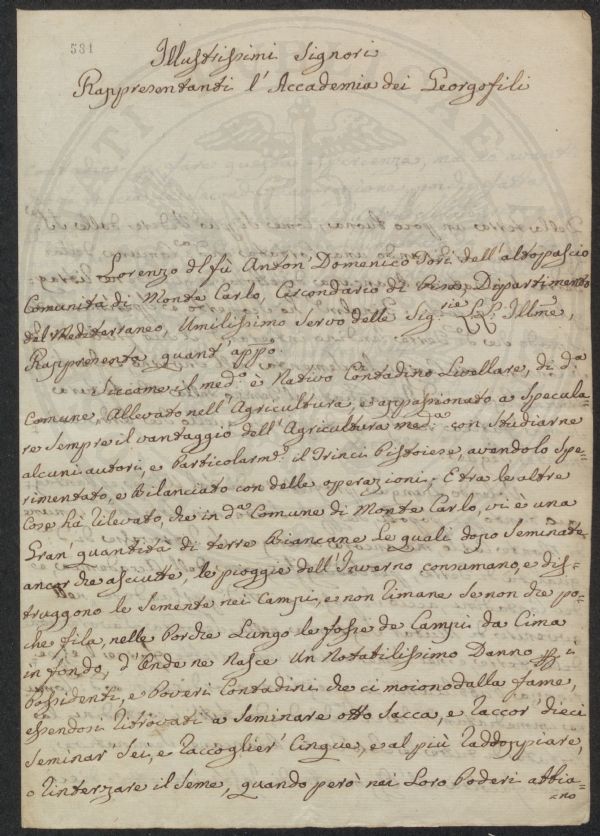 581
Illustrissimi Signori
Rappresentanti l'Accademia dei Georgofili
Lorenzo del fù Anton' Domenico Tori dell'altopascio
Comunità di Monte Carlo, Circondario di Pisa, Dipartimento
del Mediterraneo, Umilissimo Servo delle Sig.rie LL. Illme,
Rappresenta quant'appo.
Siccome il med.o è Nativo Contadino Livellare, di d.a
Comune, Allevato nell'Agricultura, e appassionato a Specula=
re Sempre il vantaggio dell'Agricultura med.a con studiarne
alcuni autori, e Particolarm.e il Trinci Pistoiese, avendolo Spe=
rimentato, e Bilanciato con delle operazioni: E tra le altre
Cose hà rilevato, che in d.a Comune di Monte Carlo, vi è una
Gran' quantità di terre Biancane Le quali dopo Seminate
ancor che asciutte, le pioggie dell'Inverno consumano, e dis=
truggono le Semente nei Campi, e non rimane se non che po=
che fila, nelle Porche Lungo le fosse de Campi da Cima
in fondo, d'Onde ne Nasce Un Notabilissimo Danno pp i
Possidenti, e Poveri Contadini che ci moiono dalla fame,
essendosi ritrovati a Seminare otto Sacca, e raccor' dieci
Seminar' Sei, e raccoglier' Cinque, e al più raddoppiare,
o rinterzare il Seme, quando però nei Loro Poderi abbia=
=no